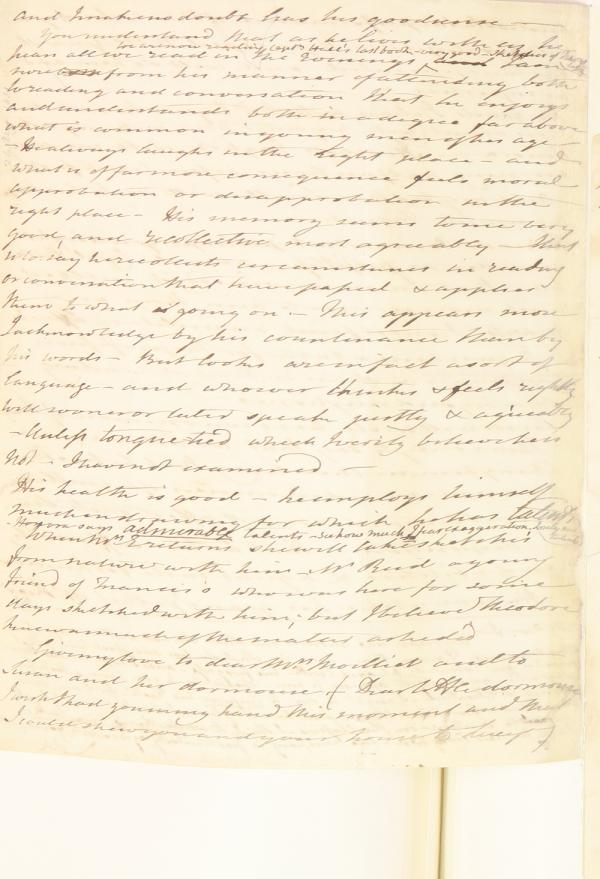 and I make no doubt has his good sense —
You understand that as he lives with us he
(we are now reading Capt. Hall's last book – very good – Sketches of
hears all we read in the evenings I am
sure from his manner of attending both
to reading and conversation that he enjoys
and understands both in a degree far above
what is common in young men of his age
– He always laughs in the right place – and
what is of far more consequence feels moral
approbation or disapprobation in the
right place – His memory seems to me very
good, and recollective most agreeably – that
is to say he recollects circumstances in reading
or conversation that have passed & applies
them to what is going on. – This appears more
I acknowledge by his countenance than by
his words – But looks are in fact a sort of
language – and whoever thinks & feels rightly
will sooner or later speak justly & agreeably
– Unless tongue tied which I verily believe he is
not – I have not examined –
His health is good – he employs himself
much in drawing for which he has talents
– Honora says admirable talents – see how much I fear exaggeration
When Mrs E returns she will take sketches
from nature with him – Mr Reid a young
friend of Francis's who was here for some
days sketched with him; but I believe Theodore
knew as much of the matter as he did
Give my love to dear Mrs Moilliet and to
Susan and her dormouse ( Dear little dormouse
I wish I had you in my hand this moment and that
I could shew you and your house to Lucy )